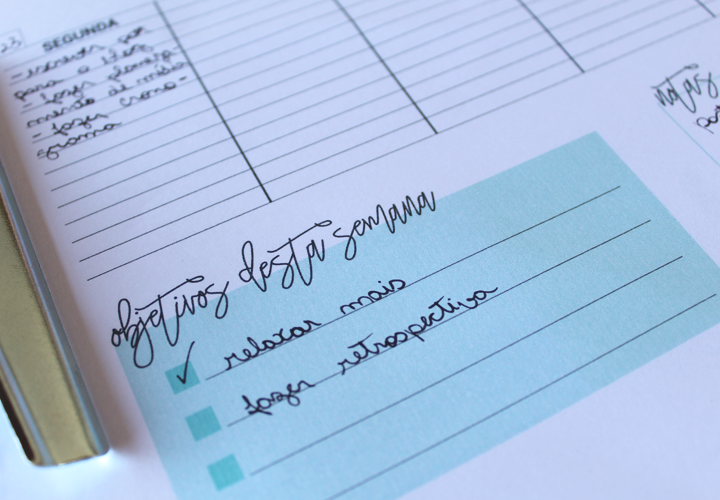 23
SEGUNDA
para o blog
- fazer planeja-
mento de mídia
- fazer crono-
grama
notas
objetivos desta semana
relaxar mais
fazer retrospectiva